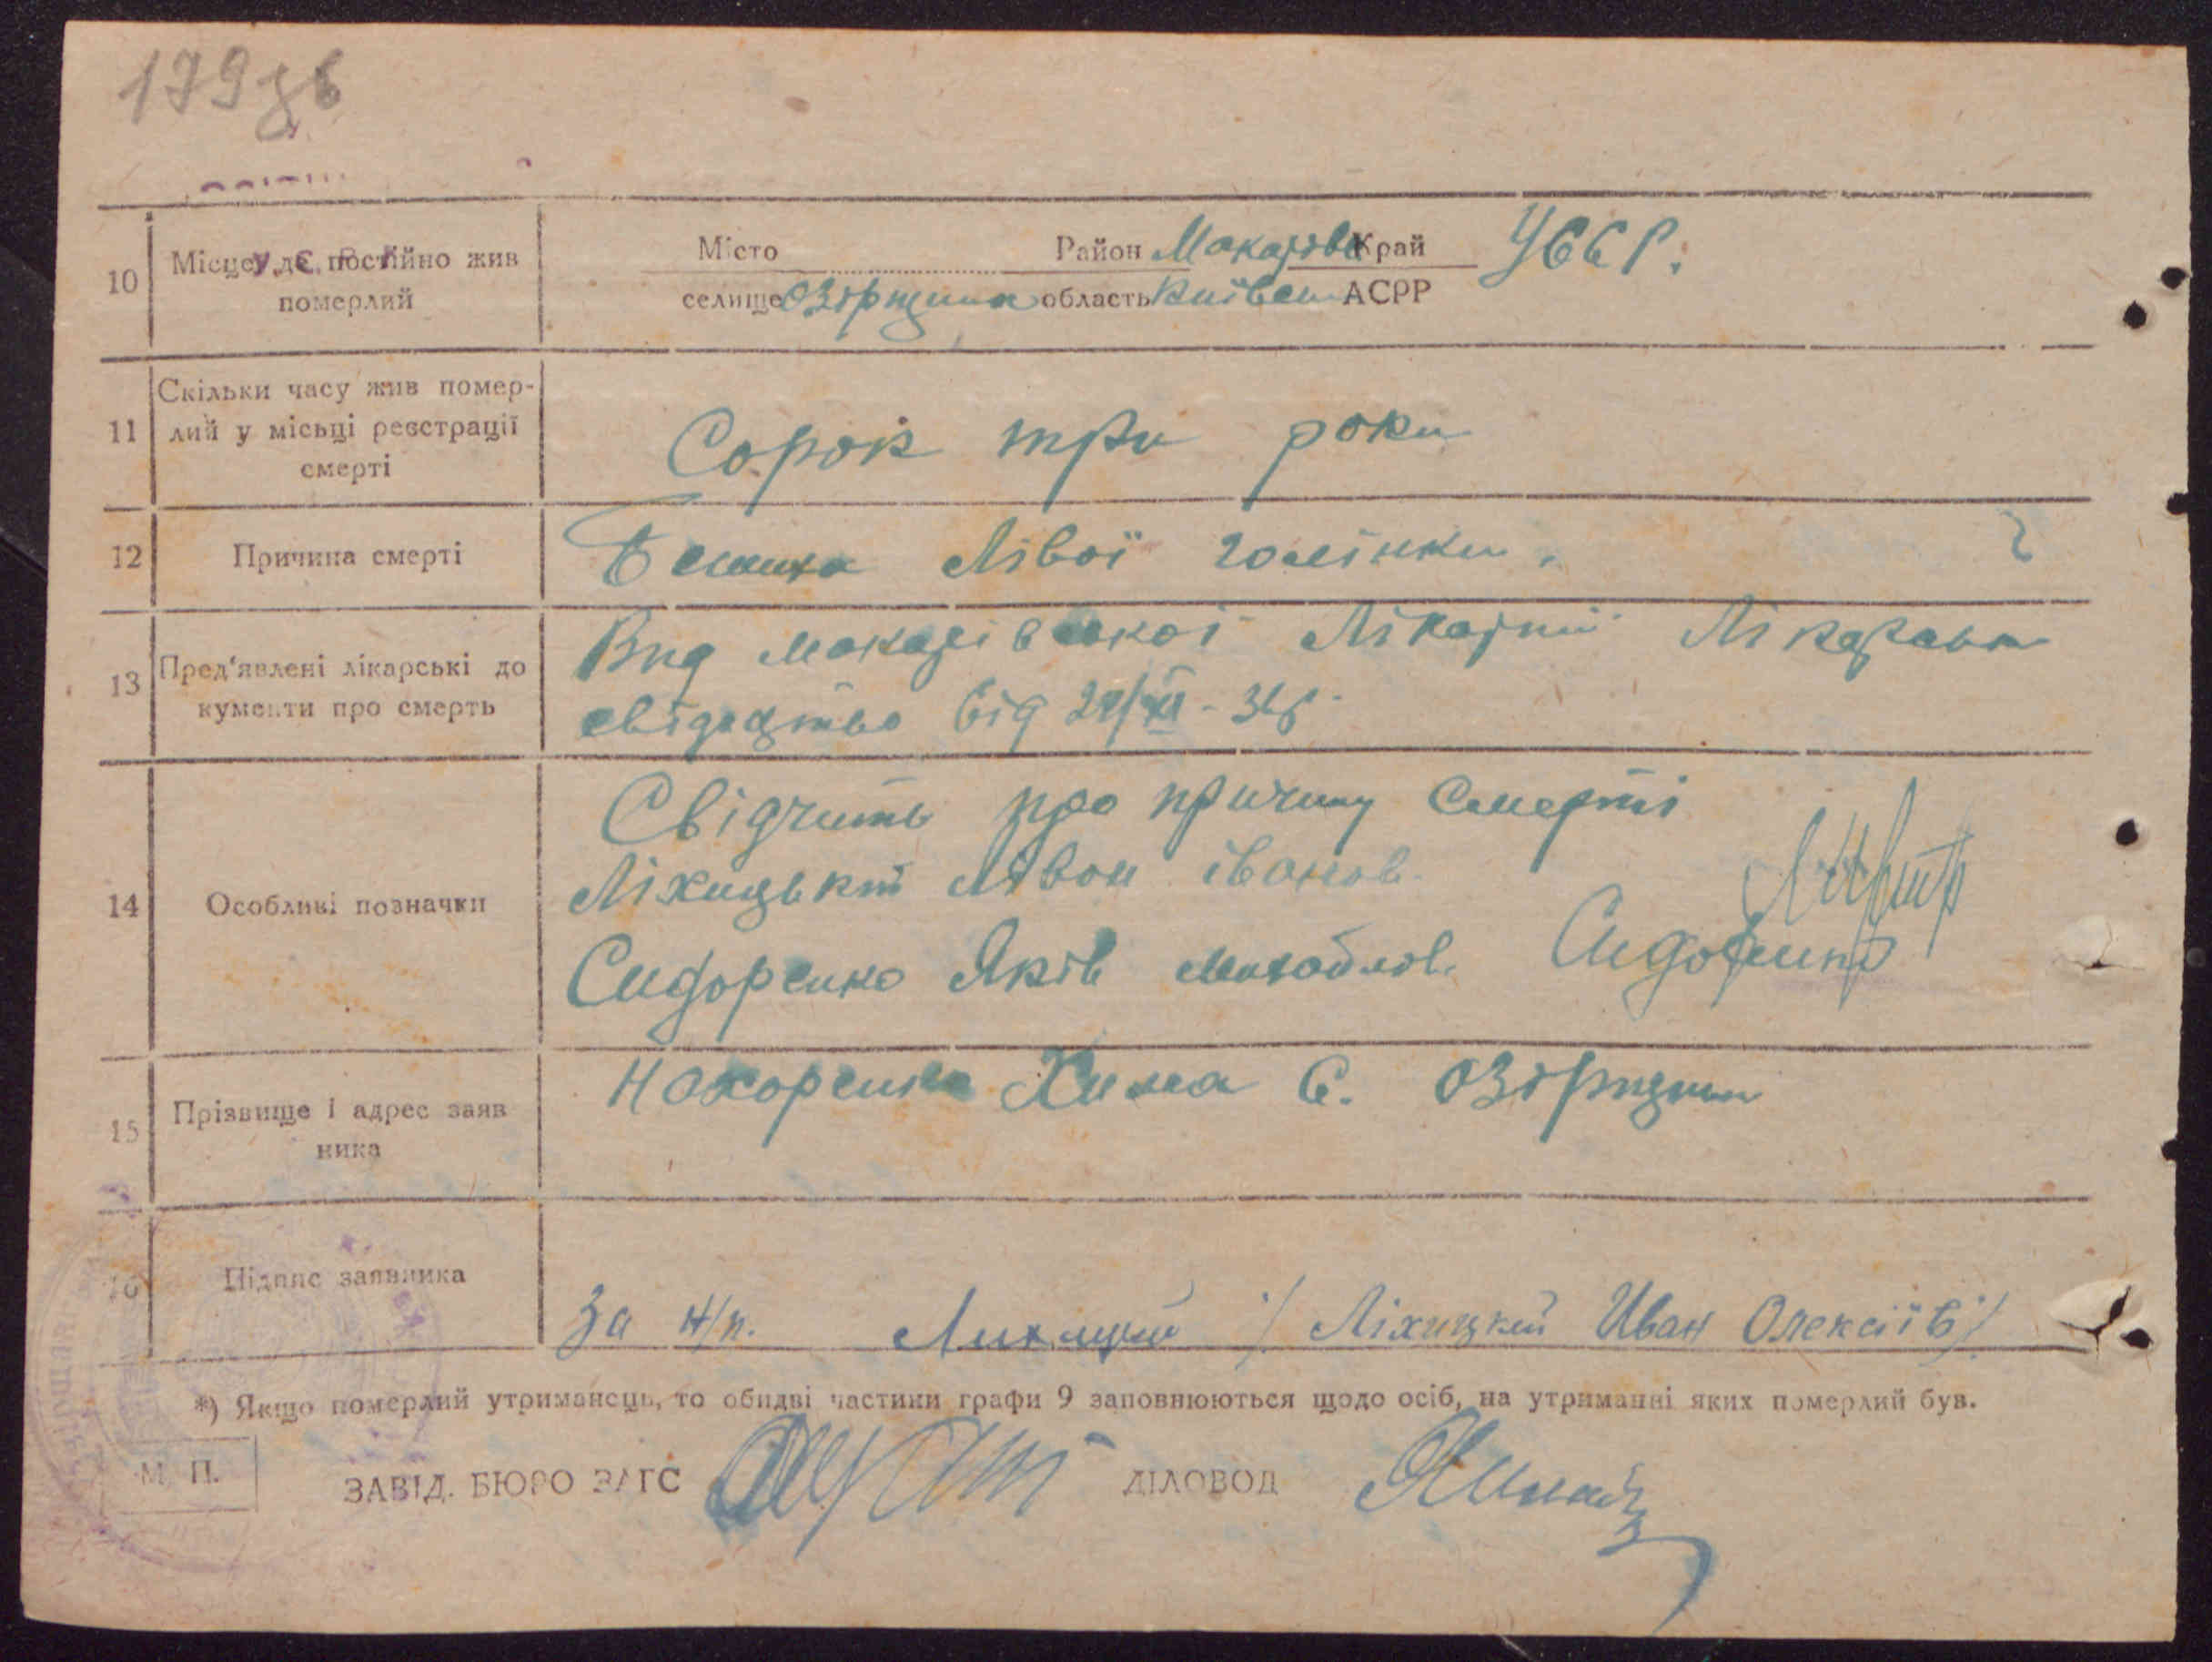 179 зв
10
Місце, де постійно жив
померлий
Місто Район Макарівс Край УССР.
селище Озірщина область Київськ АСРР
11
Скільки часу жив помер-
лий у місьці реєстрації
смерті
Сорок три роки
12
Причина смерті
Бешиха Лівої голінки.
13
Пред'явлені лікарські до
кументи про смерть
Вид Макарівської Лікарнії Лікарське
свідоцтво від
14
Особливі позначки
Свідчить про причину Смерті
Ліхицький Лівон іванов.
Сидоренко Яків Михайлов. Сидоренко
15
Прізвище і адрес заяв
ника
Хима С. Озірщина
16
Підпис заявника
За н/п. Лихицкий / Ліхицкий Иван Олексіїв /
*) Якщо померлий утриманець, то обидві частини графи 9 заповнюються щодо осіб, на утриманні яких померлий був.
М. П.
ЗАВІД. БЮРО ЗАГС ДІЛОВОД